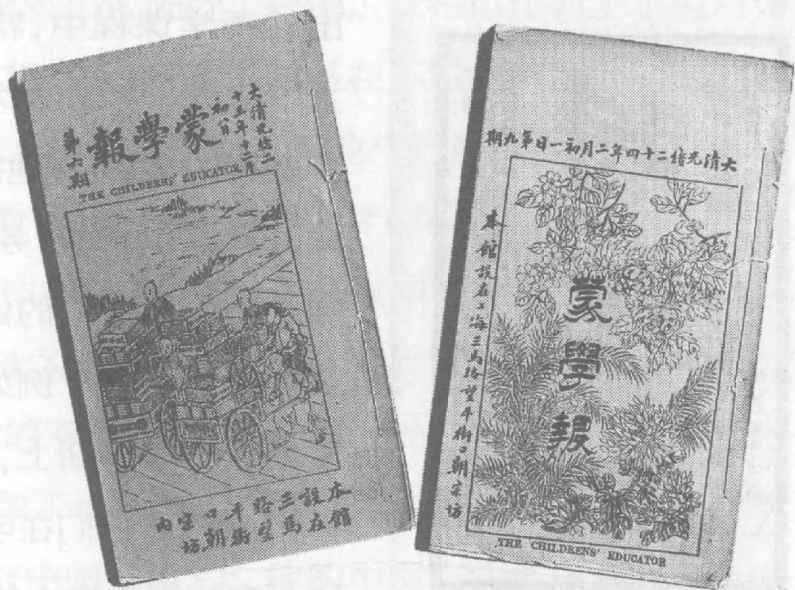 大清光緒二
十三年十二月
初一日
蒙學報
第六期
THE CHILDRENS' EDUCATOR
本館
設在
三馬
路望
平街
口朝
宗坊
内
大清光緒二十四年二月初一日第九期
蒙學報
本館設在上海三馬路望平街口朝宗坊
THE CHILDRENS' EDUCATOR